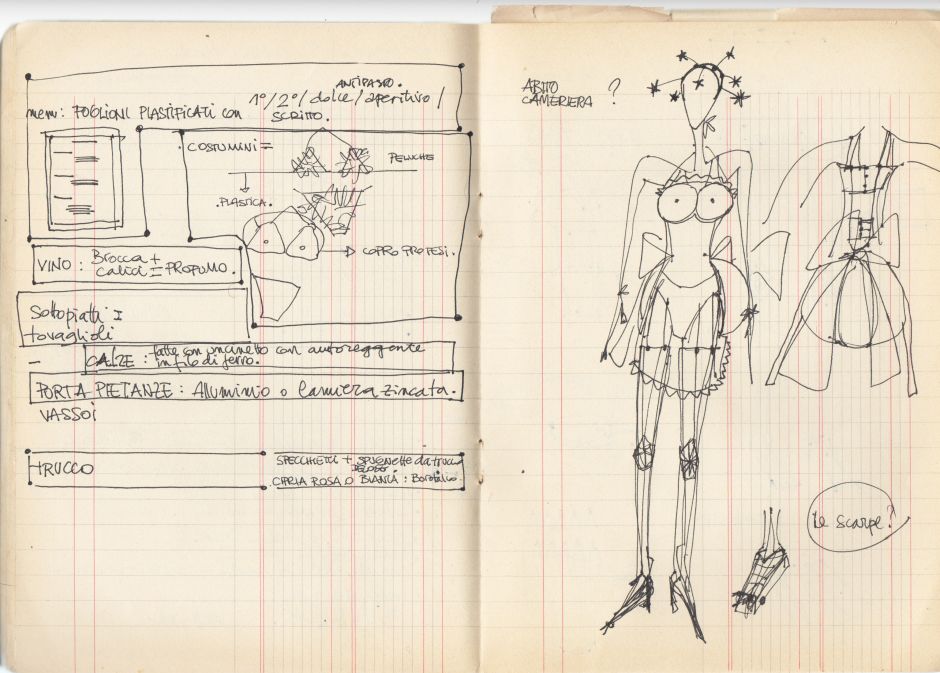 ANTIPASTO.
menu: FOGLIONI PLASTIFICATI con 1º/2º/dolce/aperitivo/
SCRITTO.
COSTUMINI =
PELUCHE
PLASTICA.
COPRO PROTESI.
VINO: Brocca +
calici = PROFUMO.
Sottopiatti =
tovaglioli
CALZE: fatte con uncinetto con autoreggente
in filo di ferro.
PORTA PIETANZE: Alluminio o lamiera zincata.
VASSOI
TRUCCO
SPECCHIETTI + SPUGNETTE da trucco
CIPRIA ROSA O BIANCA: Borotalco.
ABITO
CAMERIERA ?
le scarpe?